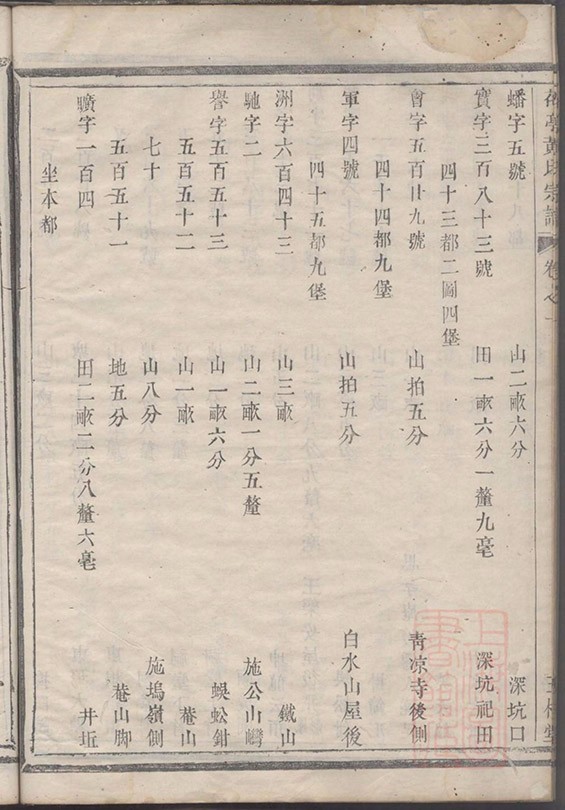 黃氏宗譜 卷之一
蟠字五號 山二畝六分 深坑口
寶字三百八十三號 田一畝六分一釐九毫 深坑祀田
四十三都二圖四堡
會字五百廿九號 山拍五分 靑凉寺後側
四十四都九堡
軍字四號 山拍五分 白水山屋後
四十五都九堡
洲字六百四十三 山三畝 鐵山
馳字二 山二畝一分五釐 施公山灣
譽字五百五十三 山一畝六分 蜈蚣鉗
五百五十二 山一畝 菴山
七十 山八分 施塢嶺側
五百五十一 地五分 菴山脚
曠字一百四 田二畝二分八釐六毫 井坵
坐本都